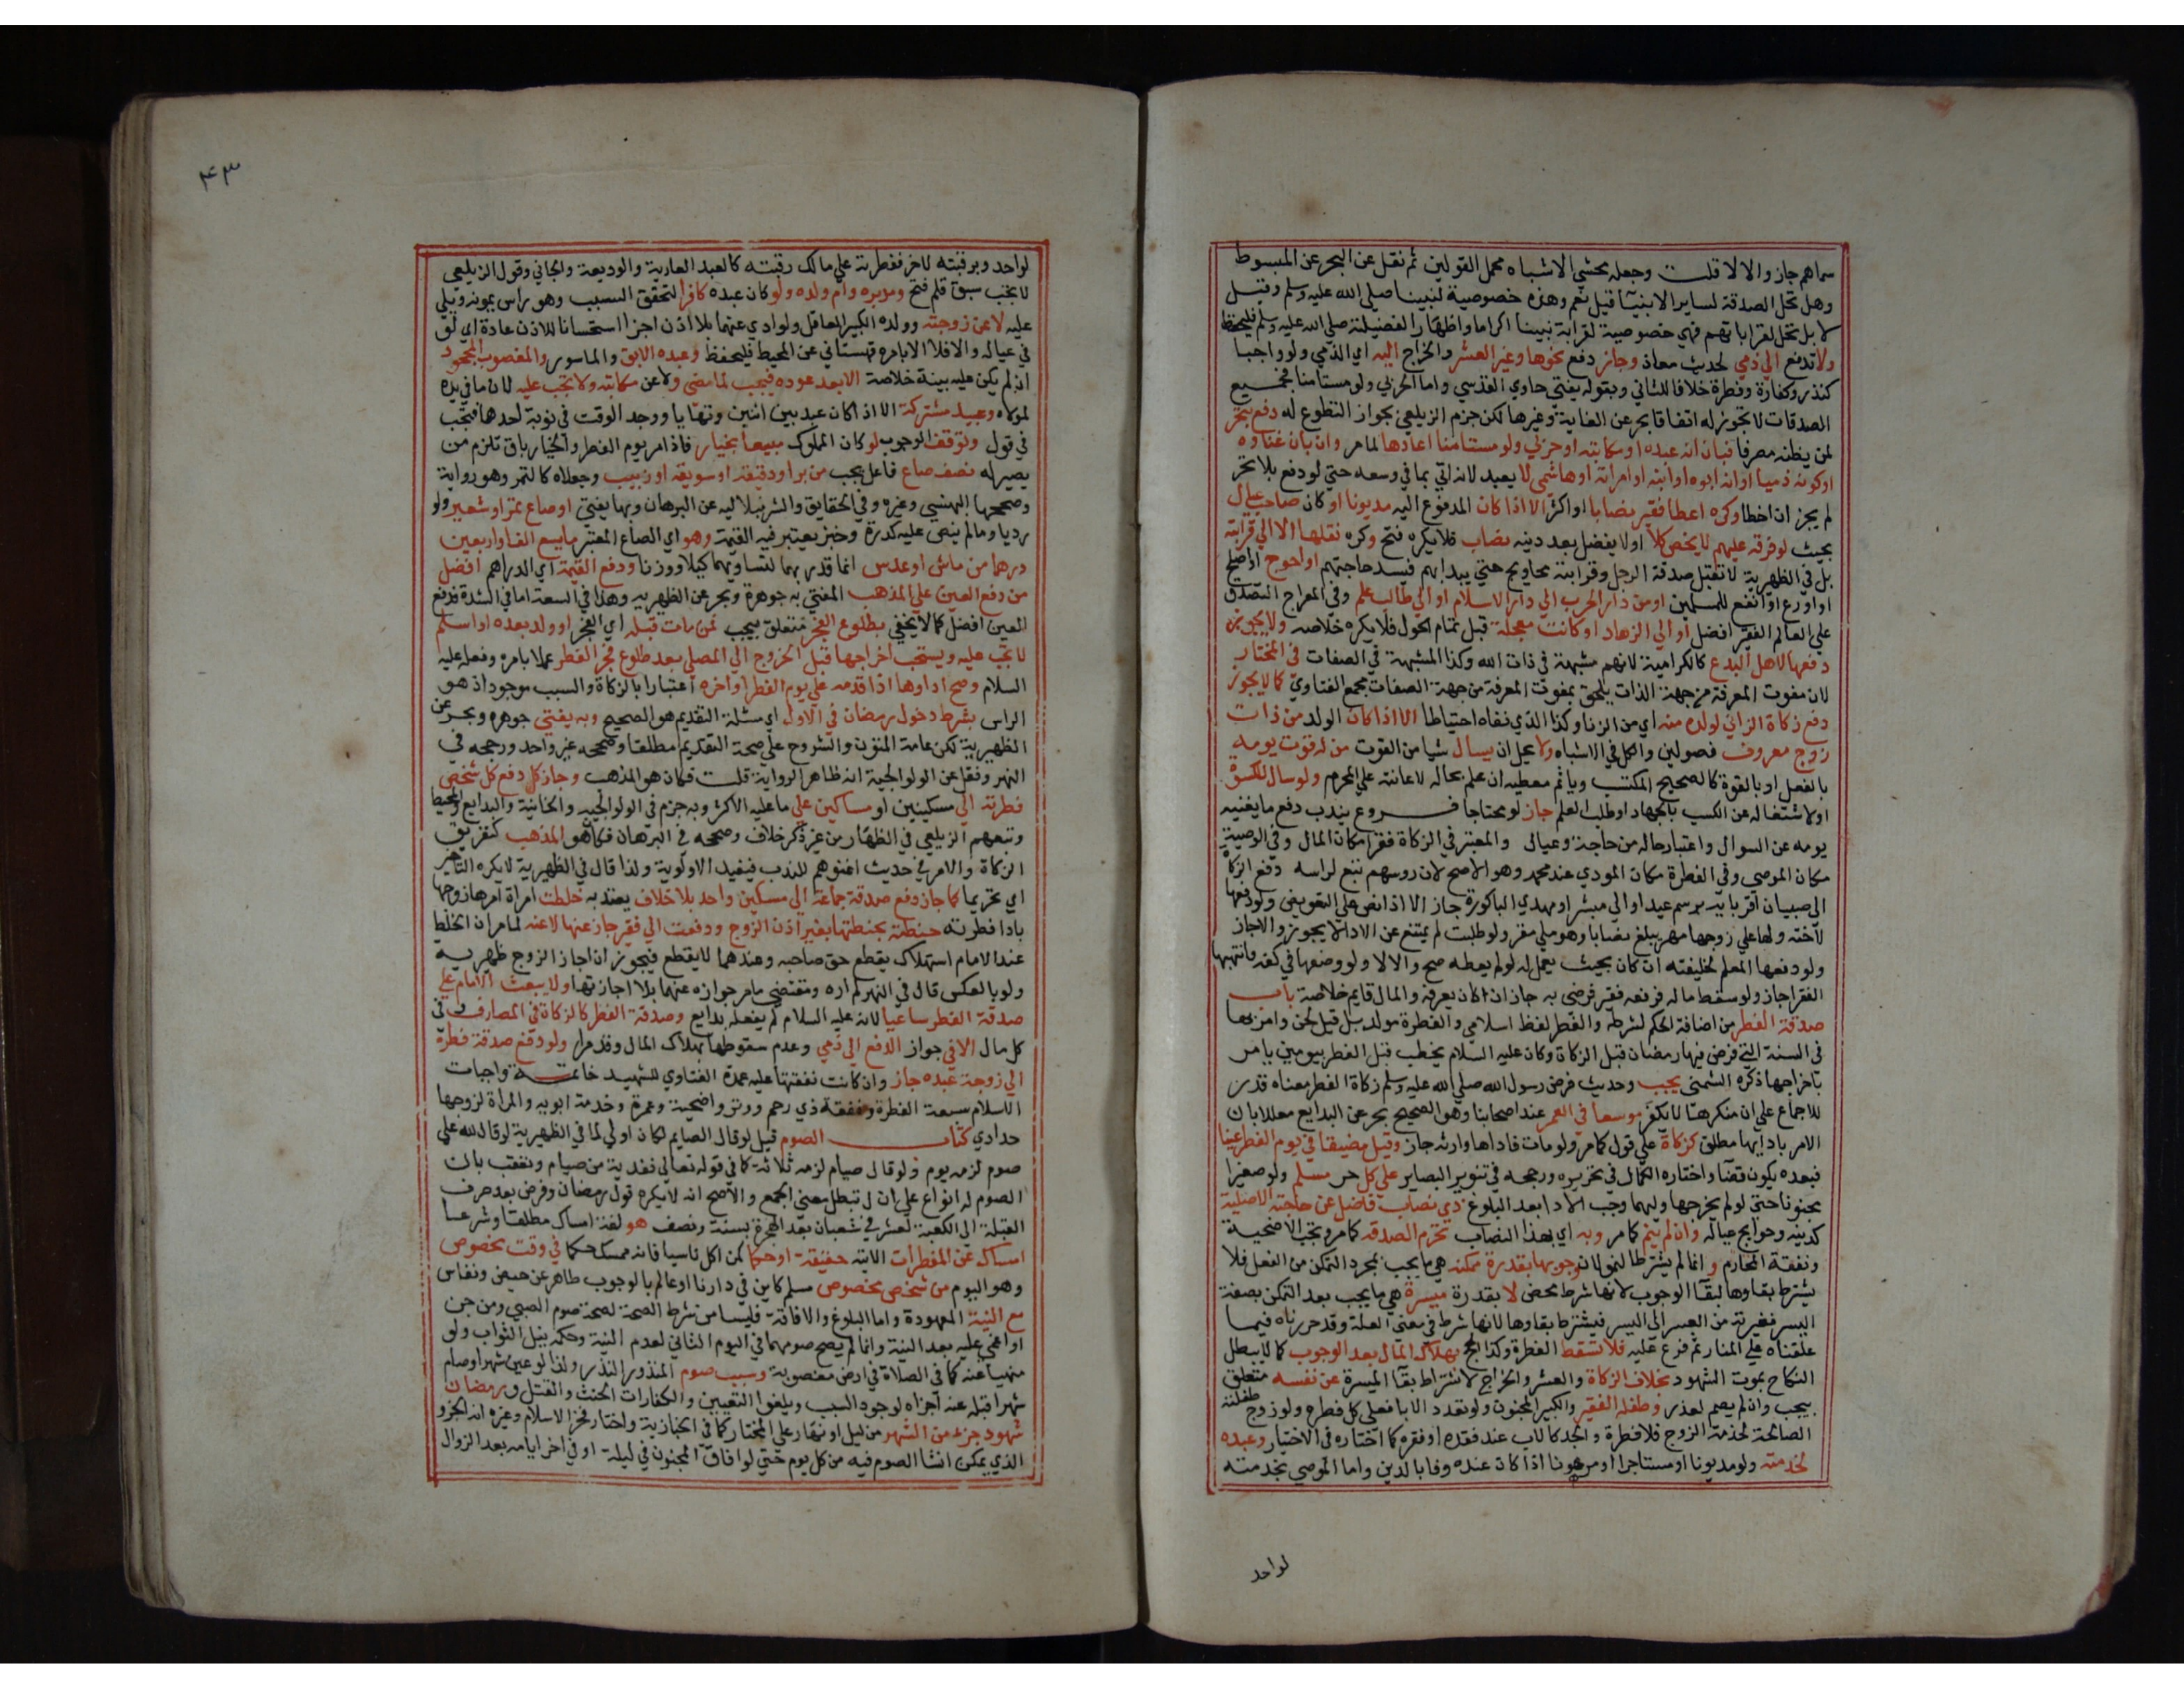 سماهم جاز والا لا قلت وجعله محشي الاشباه محمل القولين ثم نقل عن البحر عن المبسوط
وهل تحل الصدقة لساير الانبيآ قيل نعم وهذه خصوصية لنبينا صلي الله عليه وسلم وقيل
لا بل تحل لقراباتهم فهي خصوصية لقرابة نبينا اكراما واظهارا لفضيلته صلي الله عليه وسلم فليحفظ
ولا تدفع الي ذمي لحديث معاذ وجاز دفع نحوها وغير العشر والخراج اليه اي الذمي ولو واجبا
كنذر وكفارة وفطرة خلافا للثاني وبقوله يفتي حاوي القدسي واما الحربي ولو مستامنا فجميع
الصدقات لا تجوز له اتفاقا بحر عن الغاية وغيرها لكن جزم الزيلعي بجواز التطوع له دفع بتحر
لمن يظنه مصرفا فبان انه عبده او مكاتبه او حربي ولو مستامنا اعادها لما مر وان بان غناوه
او كونه ذميا او انه ابوه او ابنه او امراته او هاشمي لا يعيد لانه اتي بما في وسعه حتي لو دفع بلا تحر
لم يجز ان اخطا وكره اعطا فقير نصابا او اكثر الا اذا كان المدفوع اليه مديونا او كان صاحب عيال
بحيث لو فرقه عليهم لا يخص كلا او لا يفضل بعد دينه نصاب فلا يكره فتح وكره نقلها الا الي قرابة
بل في الظهرية لا تقبل صدقة الرجل وقرابته محاويج حتي يبدا بهم فيسد حاجتهم او احوج او اصلح
او اورع او انفع للمسلمين او من دار الحرب الي دار الاسلام او الي طالب علم وفي المعراج التصدق
علي العالم الفقير افضل او الي الزهاد او كانت معجلة قبل تمام الحول فلا يكره خلاصه ولا يجوز
دفعها لاهل البدع كالكرامية لانهم مشبهة في ذات الله وكذا المشبهة في الصفات في المختار
لان مفوت المعرفة من جهة الذات يلحق بمفوت المعرفة من جهة الصفات مجمع الفتاوي كما لا يجوز
دفع زكاة الزاني لولده منه اي من الزنا وكذا الذي نفاه احتياطا الا اذا كان الولد من ذات
زوج معروف فصولين والكل في الاشباه ولا يحل ان يسال شيا من القوت من له قوت يومه
بالفعل او بالقوة كالصحيح المكتسب وياثم معطيه ان علم بحاله لاعانته علي المحرم ولو سال للكسوة
او لاشتغاله عن الكسب بالجهاد او طلب العلم جاز لو محتاجا فروع يندب دفع ما يغنيه
يومه عن السوال واعتبار حاله من حاجة وعيال والمعتبر في الزكاة فقرا مكان المال وفي الوصية
مكان الموصي وفي الفطرة مكان المودي عند محمد وهو الاصح لان روسهم تتبع لراسه دفع الزكاة
الي صبيان اقربايه برسم عيد او الي مبشر او مهدي الباكورة جاز الا اذا نص علي التعويض ولو دفعها
لاخته ولها علي زوجها مهر يبلغ نصابا وهو ملي مقر ولو طلبت لم يمتنع عن الادا لا يجوز والا جاز
ولو دفعها المعلم لخليفته ان كان بحيث يعمل له لو لم يعطه صح والا لا ولو وضعها في كفه فانتهبها
الفقرا جاز ولو سقط ماله فرفعه فقير فرضي به جاز ان كان يعرفه والمال قايم خلاصة باب
صدقة الفطر من اضافة الحكم لشرطه والفطر لفظ اسلامي والفطرة مولد بل قيل لحن وامر بها
في السنة التي فرض فيها رمضان قبل الزكاة وكان عليه السلام يخطب قبل الفطر بيومين يامر
باخراجها ذكره الشمني يجب وحديث فرض رسول الله صلي الله عليه وسلم زكاة الفطر معناه قدر
للاجماع علي ان منكرها لا يكفر موسعا في العمر عند اصحابنا وهو الصحيح بحر عن البدايع معللا بان
الامر بادايها مطلق كزكاة علي قول كما مر ولو مات فاداها وارثه جاز وقيل مضيقا في يوم الفطر عينا
فبعده يكون قضآ واختاره الكمال في تحريره ورجحه في تنوير البصاير علي كل حر مسلم ولو صغيرا
مجنونا حتي لو لم يخرجها وليهما وجب الادا بعد البلوغ ذي نصاب فاضل عن حاجته الاصلية
كدينه وحوايج عياله وان لم ينم كما مر وبه اي بهذا النصاب تحرم الصدقه كما مر وتجب الاضحية
ونفقة المحارم و انما لم يشترط النمو لان وجوبها بقدرة ممكنه هي ما يجب بمجرد التمكن من الفعل فلا
يشترط بقاوها لبقآ الوجوب لانها شرط محض لا بقدرة ميسرة هي ما يجب بعد التمكن بصفة
اليسر فغيرته من العسر الي اليسر فيشترط بقاوها لانها شرط في معني العلة وقد حررناه فيما
علقناه علي المنار ثم فرع عليه فلا تسقط الفطرة وكذا الحج بهلاك المال بعد الوجوب كما لا يبطل
النكاح بموت الشهود بخلاف الزكاة والعشر والخراج لاشتراط بقآ الميسرة عن نفسه متعلق
بيجب وان لم يصم لعذر وطفله الفقير والكبير المجنون ولو تعدد الابا فعلي كل فطره ولو زوج طفلته
الصالحة لخدمة الزوج فلا فطرة والجد كالاب عند فقده او فقره كما اختاره في الاختيار وعبده
لخدمته ولو مديونا او مستاجرا او مرهونا اذا كان عنده وفا بالدين واما الموصي بخدمته
لواحد
٤٣
لواحد وبرقبته لاخر ففطرته علي مالك رقبته كالعبد العارية والوديعة والجاني وقول الزيلعي
لا يجب سبق قلم فتح ومدبره وام ولده ولو كان عبده كافرا لتحقق السبب وهو راس يمونه ويلي
عليه لا عن زوجته وولده الكبير العاقل ولو ادي عنهما بلا اذن اجزا استحسانا للاذن عادة اي لو
في عياله والا فلا الا بامره قهستاني عن المحيط فليحفظ وعبده الابق والماسور والمغصوب المجحود
ان لم يكن عليه بينة خلاصة الا بعد عوده فيجب لما مضي ولا عن مكاتبه ولا تجب عليه لان ما في يده
لمولاه وعبيد مشتركة الا اذا كان عبد بين اثنين وتهايا ووجد الوقت في نوبة احدهما فتجب
في قول وتوقف الوجوب لو كان المملوك مبيعا بخيار فاذا مر يوم الفطر والخيار باق تلزم من
يصير له نصف صاع فاعل يجب من بر او دقيقه او سويقه او زبيب وجعلاه كالتمر وهو رواية
وصححها البهنسي وغيره وفي الحقايق والشرنبلاليه عن البرهان وبها يفتي او صاع تمر او شعير ولو
رديا وما لم ينص عليه كذرة وخبز يعتبر فيه القيمة وهو اي الصاع المعتبر ما يسع الفا واربعين
درهما من ماش او عدس انما قدر بهما لتساويهما كيلا ووزنا ودفع القيمة اي الدراهم افضل
من دفع العين علي المذهب المفتي به جوهرة وبحر عن الظهريه وهذا في السعة اما في الشدة فدفع
العين افضل كما لا يخفي بطلوع الفجر متعلق بيجب فمن مات قبله اي الفجر او ولد بعده او اسلم
لا تجب عليه ويستحب اخراجها قبل الخروج الي المصلي بعد طلوع فجر الفطر عملا بامره وفعله عليه
السلام وصح اداوها اذا قدمه علي يوم الفطر او اخره اعتبارا بالزكاة والسبب موجود اذ هو
الراس بشرط دخول رمضان في الاول اي مسئلة التقديم هو الصحيح وبه يفتي جوهره وبحر عن
الظهيرية لكن عامة المتون والشروح علي صحة التقديم مطلقا وصححه غير واحد ورجحه في
النهر ونقل عن الولوالجية انه ظاهر الرواية قلت فكان هو المذهب وجاز كل دفع كل شخص
فطرته الي مسكينين او مساكين علي ما عليه الاكثر وبه جزم في الولوالجيه والخانية والبدايع والمحيط
وتبعهم الزيلعي في الظهار من غير ذكر خلاف وصححه في البرهان فكان هو المذهب كتفريق
الزكاة والامر في حديث اغنوهم للندب فيفيد الاولوية ولذا قال في الظهيرية لا يكره التاخير
اي تحريما كما جاز دفع صدقة جماعة الي مسكين واحد بلا خلاف يعتد به خلطت امراة امرها زوجها
بادا فطرته حنطته بحنطتها بغير اذن الزوج ودفعت الي فقير جاز عنها لا عنه لما مر ان الخلط
عند الامام استهلاك يقطع حق صاحبه وعندهما لا يقطع فيجوز ان اجاز الزوج ظهيريه
ولو بالعكس قال في النهر لم اره ومقتضي ما مر جوازه عنهما بلا اجازتها ولا يبعث الامام علي
صدقة الفطر ساعيا لانه عليه السلام لم يفعله بدايع وصدقة الفطر كالزكاة في المصارف و في
كل حال الا في جواز الدفع الي ذمي وعدم سقوطها بهلاك المال وقد مرا ولو دفع صدقة فطره
الي زوجة عبده جاز وان كانت نفقتها عليه عمدة الفتاوي للشهيد خاتمة واجبات
الاسلام سبعة الفطرة ونفقة ذي رحم ووتر واضحية وعمرة وخدمة ابويه والمراة لزوجها
حدادي كتاب الصوم قيل لو قال الصيام لكان اولي لما في الظهيرية لو قال لله علي
صوم لزمه يوم ولو قال صيام لزمه ثلاثة كما في قوله تعالي ففدية من صيام وتعقب بان
الصوم له انواع علي ان ل تبطل معني الجمع والاصح انه لا يكره قول رمضان وفرض بعد صرف
القبلة الي الكعبة لعشر في شعبان بعد الهجرة بسنة ونصف هو لغة امساك مطلقا وشرعا
امساك عن المفطرات الاتية حقيقة او حكما كمن اكل ناسيا فانه ممسك حكما في وقت مخصوص
وهو اليوم من شخص مخصوص مسلم كاين في دارنا او عالم بالوجوب طاهر عن حيض ونفاس
مع النية المعهودة واما البلوغ والافاقة فليسا من شرط الصحة لصحة صوم الصبي ومن جن
او اغمي عليه بعد النية وانما لم يصح صومهما في اليوم الثاني لعدم النية وحكمه نيل الثواب ولو
منهيا عنه كما في الصلاة في ارض مغصوبة وسبب صوم المنذور النذر ولذا لو عين شهرا وصام
شهرا قبله عنه اجزاه لوجود السبب ويلغو التعيين والكفارات الحنث والقتل و رمضان
شهود جزء من الشهر من ليل او نهار علي المختار كما في الخبازية واختار فخر الاسلام وغيره انه الجزو
الذي يمكن انشا الصوم فيه من كل يوم حتي لو افاق المجنون في ليلة او في اخر ايامه بعد الزوال